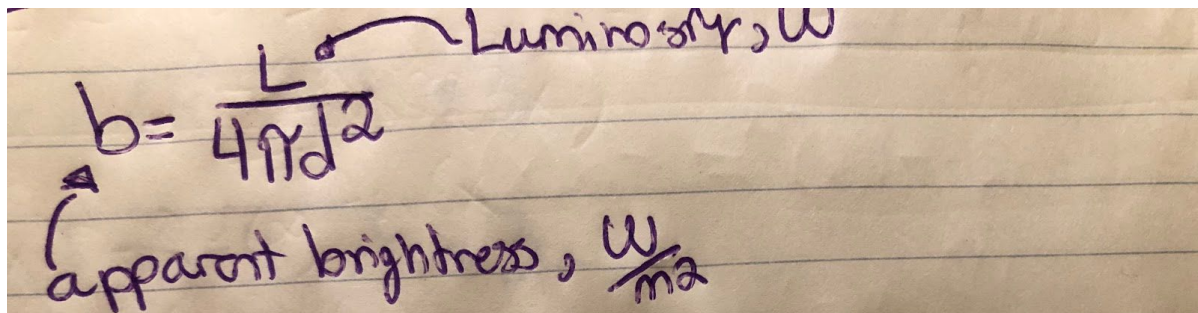 Luminosity, W
b= L/4πd²
apparent brightness, W/m2